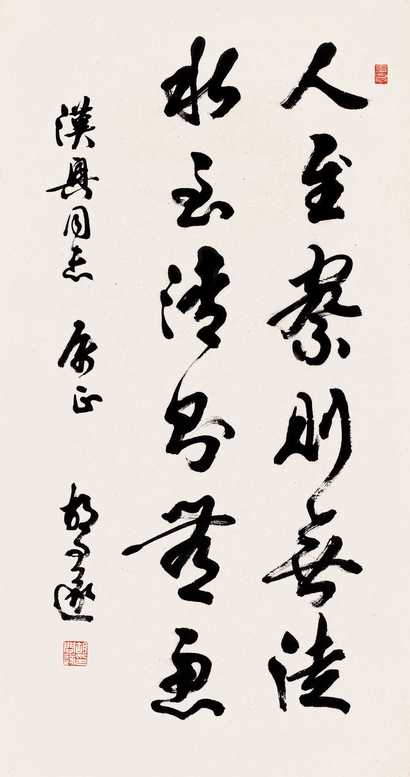 人至察則無徒
水至清則無魚
漢興同志 属正
胡問遂